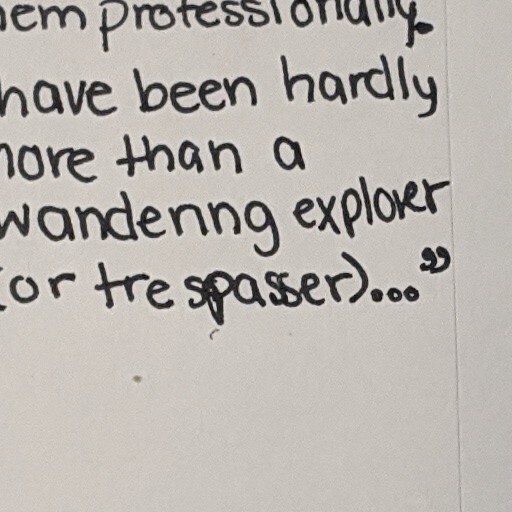 hem professionally.
have been hardly
more than a
wandering explorer
(or trespasser)..."